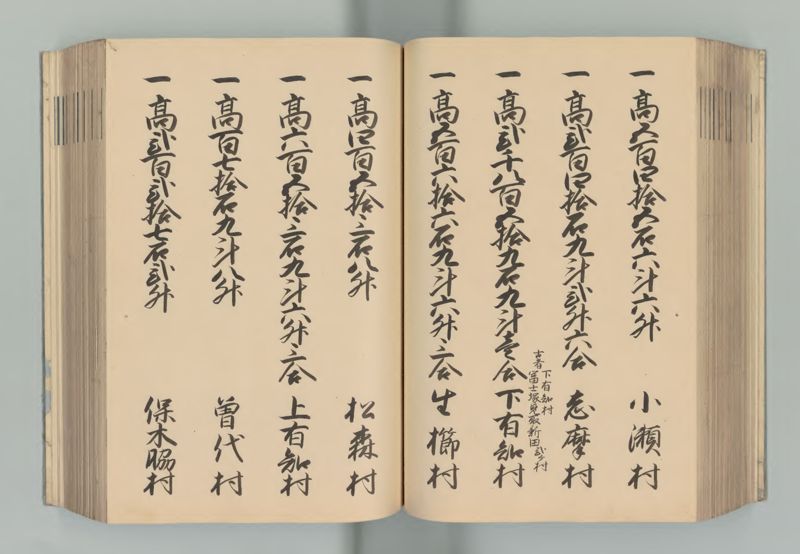 一高五百四拾五石六斗六升 小瀬村
一高弐百四拾石九斗弐升六合 志摩村
一高弐千八百五拾九石九斗壱合 下有知村
古者下有知村
富士塚見取新田弐ヶ村
一高五百六拾六石九斗六升三合 生櫛村
一高四百五拾三石八升 松森村
一高六百五拾三石九斗六升三合 上有知村
一高百七拾石九斗八升 曽代村
一高弐百弐拾七石弐升 保木脇村